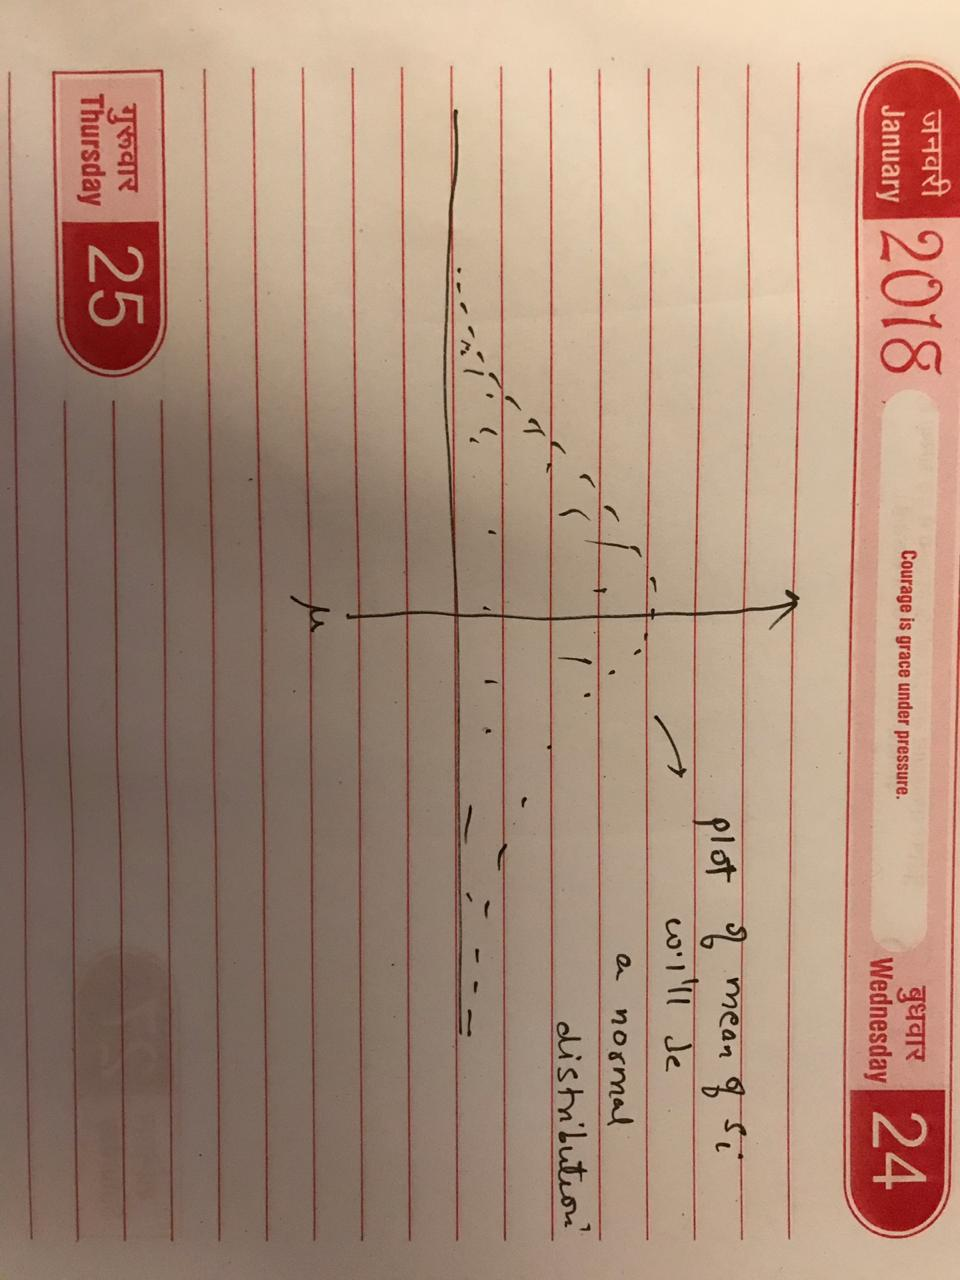 जनवरी
January
2018
Courage is grace under pressure.
बुधवार
Wednesday
24
plot of mean of Si
will be
a normal
distribution
μ
गुरूवार
Thursday
25